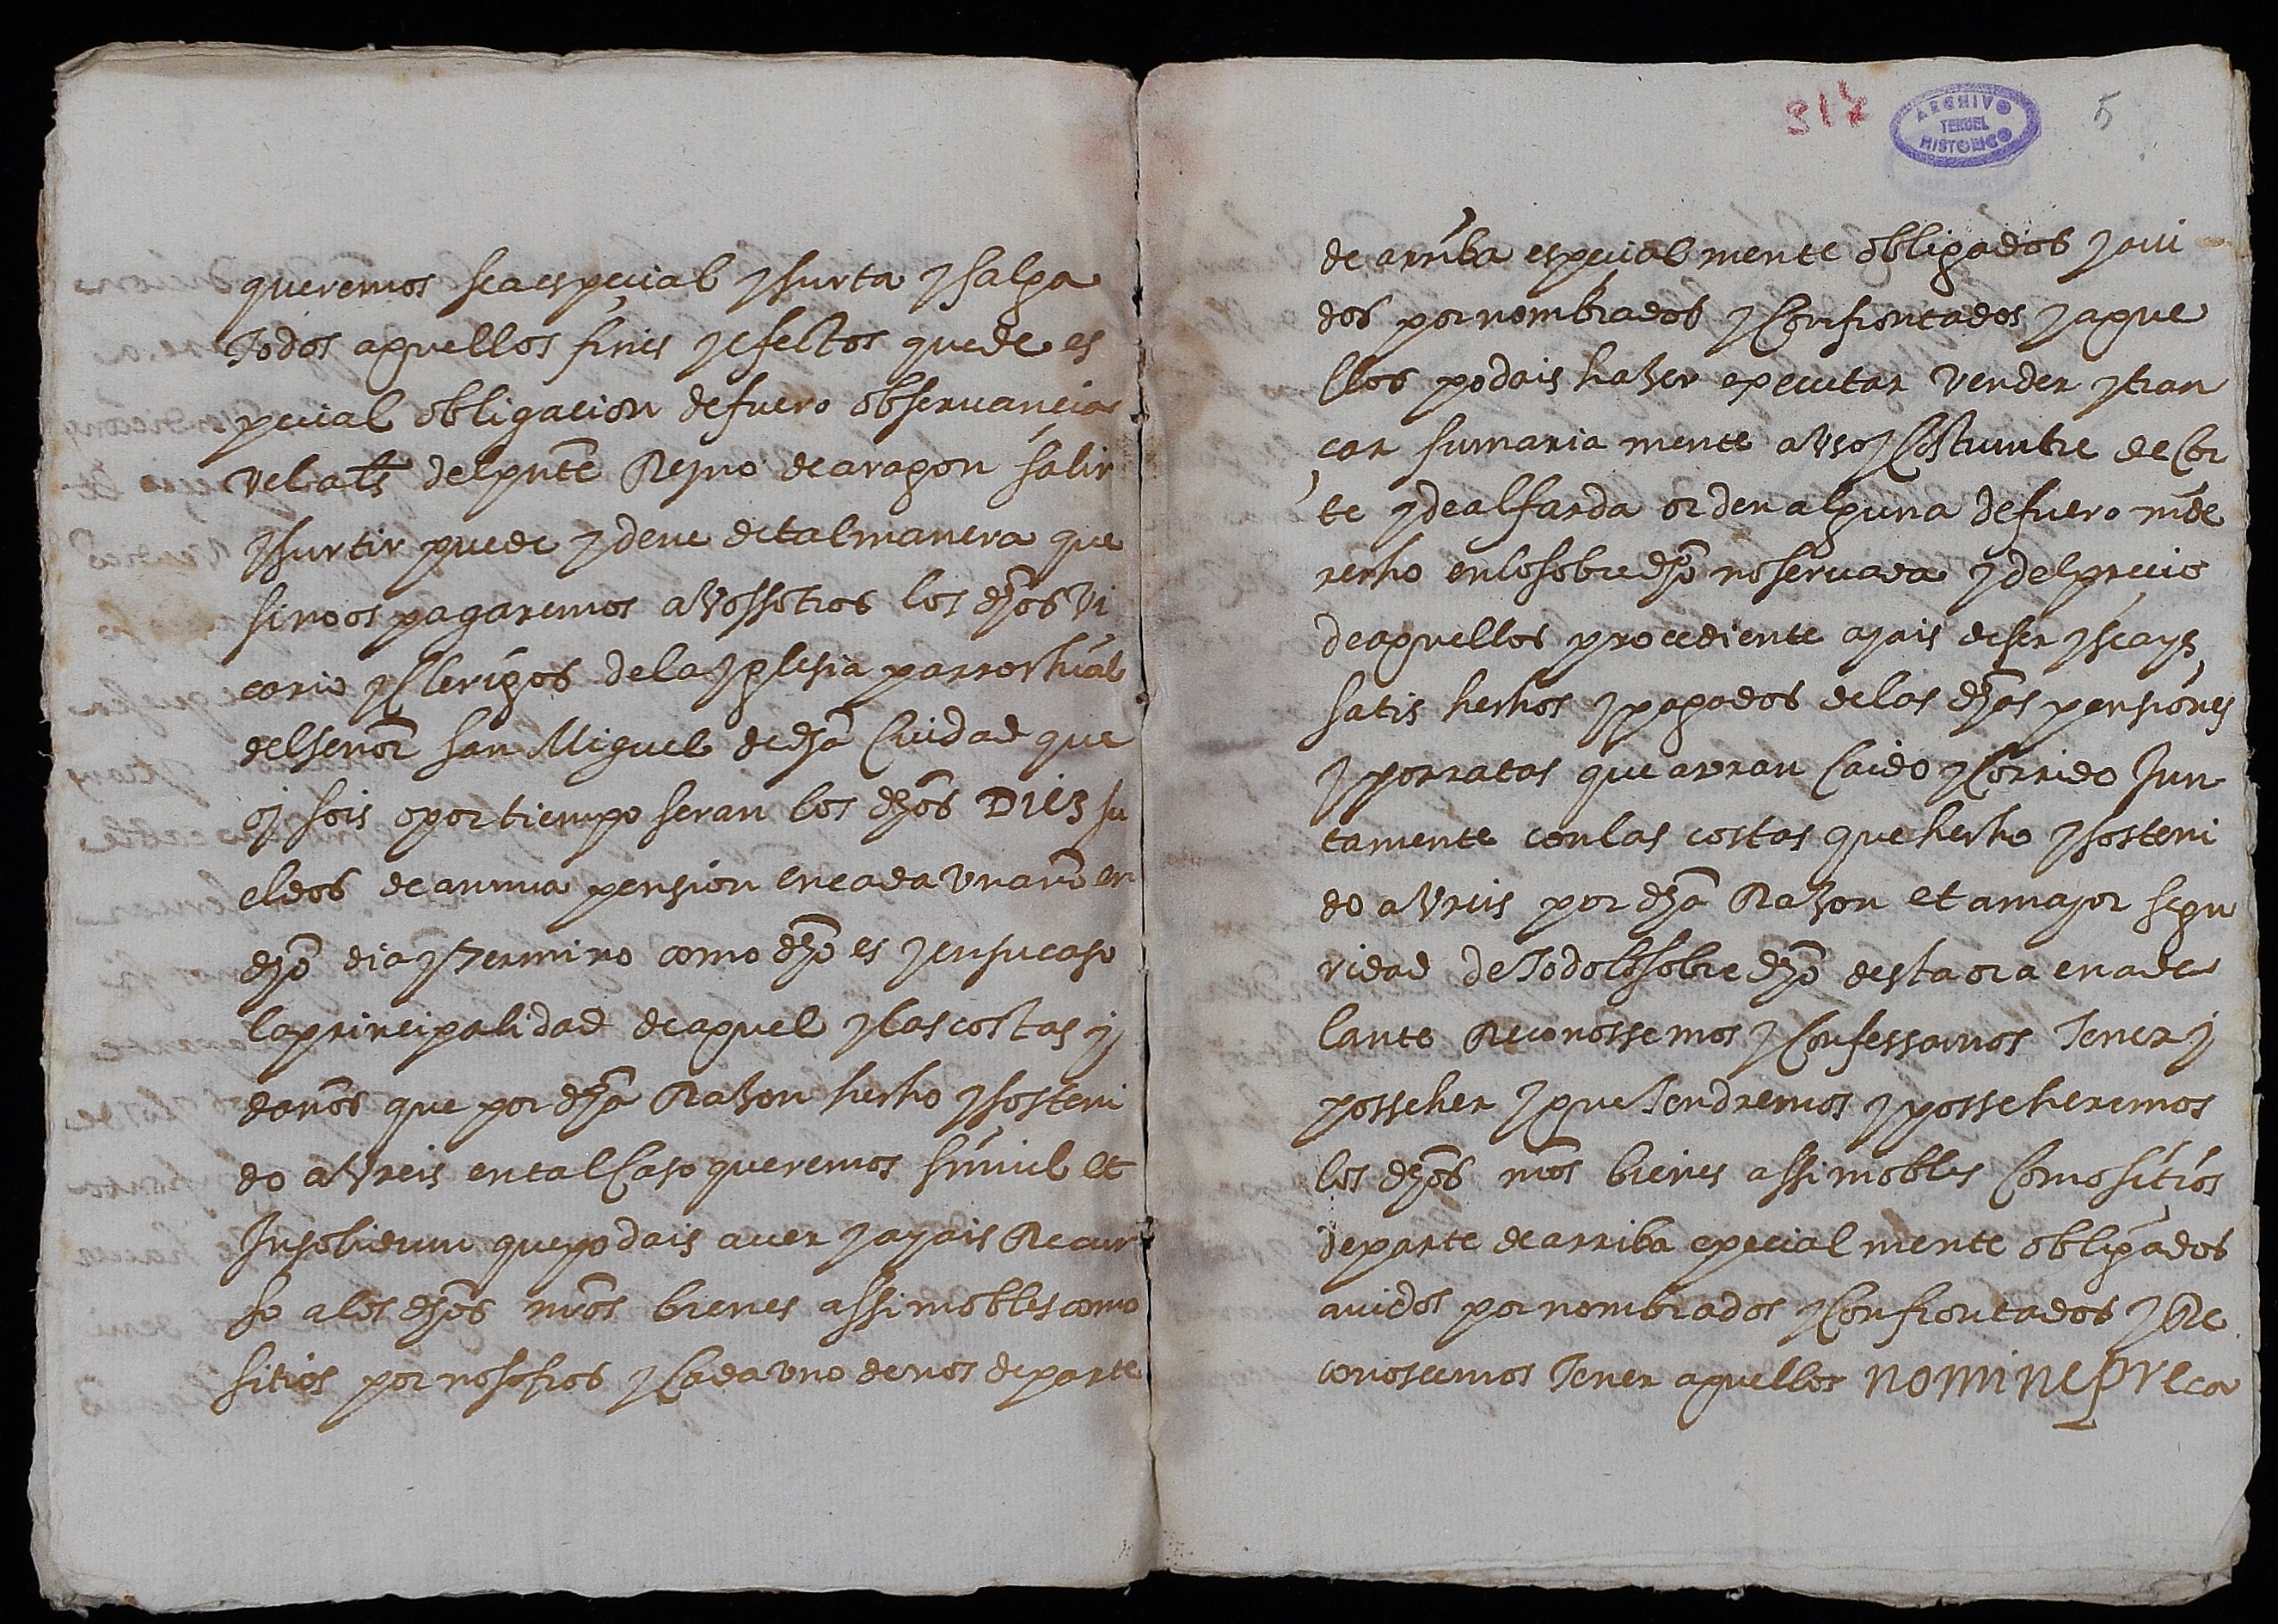 queremos sea especial y surta y salga
Todos aquellos fines y efectos que de es
pecial obligacion de fuero observancia
vel als del pnte Reyno de aragon salir
y surtir puede y deue de tal manera que
si no os pagaremos a vossotros los dhos Vi
cario y Clerigos de la yglesia parrochial
del senor san Miguel de dha Ciudad que
oy sois o por tiempo seran los dhos DIEZ su
eldos de annua pension en cada un año en
dho dia y Termino como dho es y en su caso
la principalidad de aquel y las costas y
daños que por dha Razon hecho y sosteni
do avreis en tal Caso queremos simul et
Insolidum que podais auer y ayais Recur
so a los dhos nros bienes assi mobles como
sitios por nosotros y Cada uno de nos de parte
317
ARCHIVO
TERUEL
HISTORICO
5
de arriba especial mente obligados y aui
dos por nombrados y Confrontados y aque
llos podais hazer executar vender y tran
çar sumaria mente a uso y Costumbre de Cor
te y de alfarda orden alguna de fuero ni de
recho en lo sobre dho no seruada y del precio
de aquellos procediente ajais de ser y seays
satis hechos y pagados de las dhas pensiones
y porratas que avran Caido y Corrido Jun
tamente con las costas que hecho y sosteni
do avreis por dha Razon et a major segu
ridad de Todo lo sobre dho desta ora en ade
lante Reconossemos y Confessamos Tener y
posseher y que Tendremos y posseheremos
los dhos nros bienes assi mobles Como sitios
de parte de arriba especial mente obligados
auidos por nombrados y Confrontados y Re
conoscemos Tener aquellos nomine preca